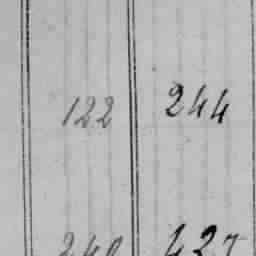 122 244
240 427